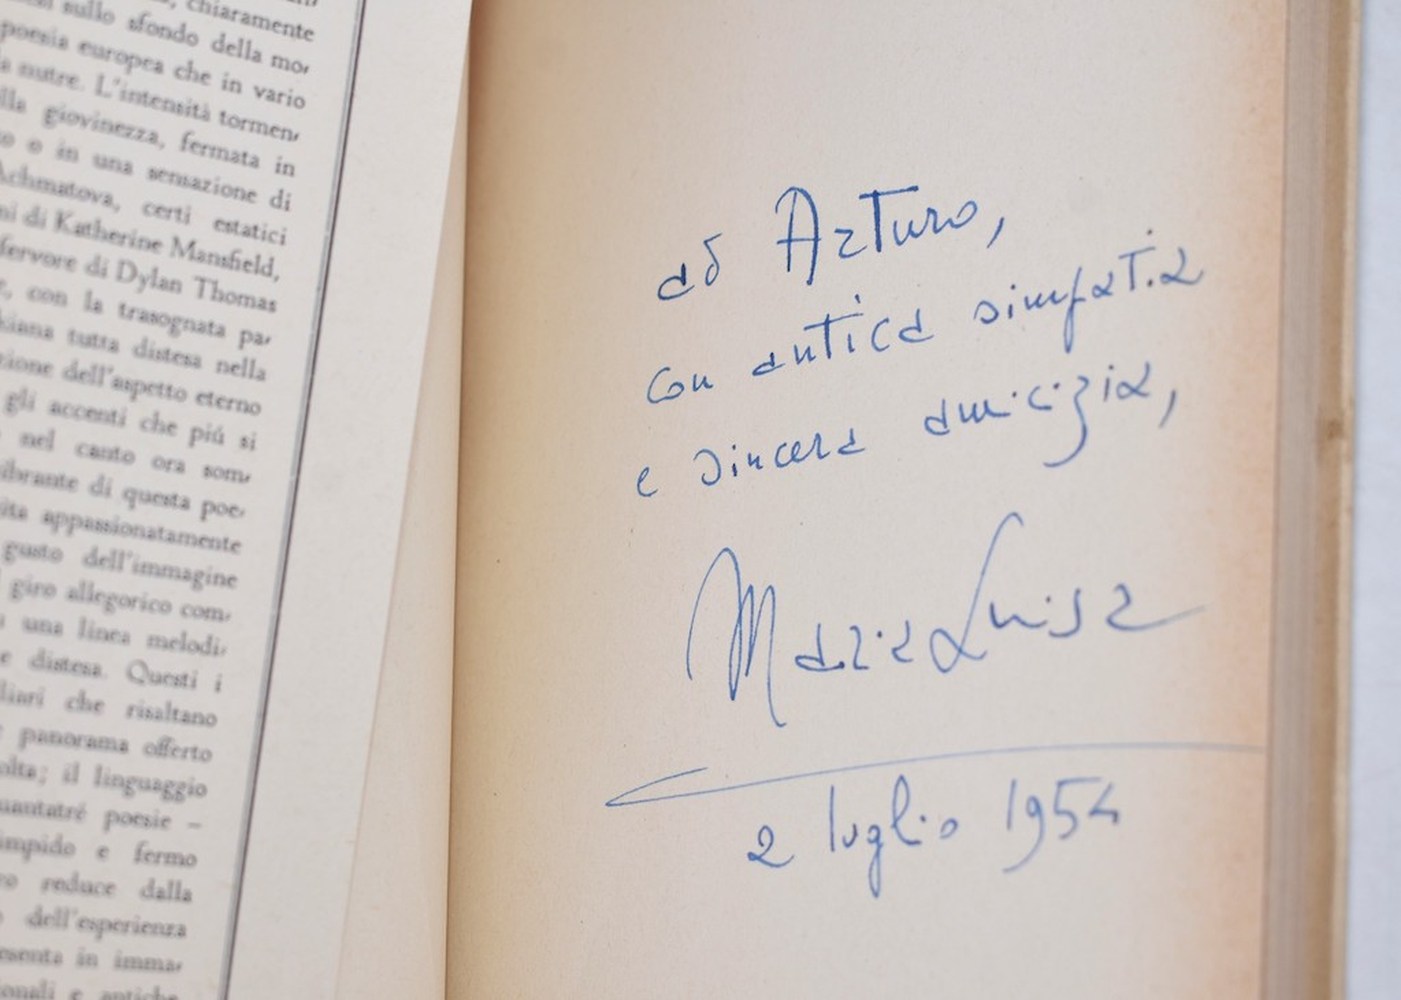 chiaramente
sullo sfondo della mo,
poesia europea che in vario
nutre. L'intensità tormen,
giovinezza, fermata in
o in una sensazione di
Achmatova, certi estatici
di Katherine Mansfield,
fervore di Dylan Thomas
con la trasognata pa,
tutta distesa nella
dell'aspetto eterno
gli accenti che più si
nel canto ora som,
vibrante di questa poe,
appassionatamente
gusto dell'immagine
giro allegorico com,
una linea melodi,
e distesa. Questi i
che risaltano
panorama offerto
il linguaggio
poesie –
e fermo
reduce dalla
dell'esperienza
in imma,
e antiche
ad Arturo,
con antica simpatia
e sincera amicizia,
Maria Luisa
2 luglio 1954